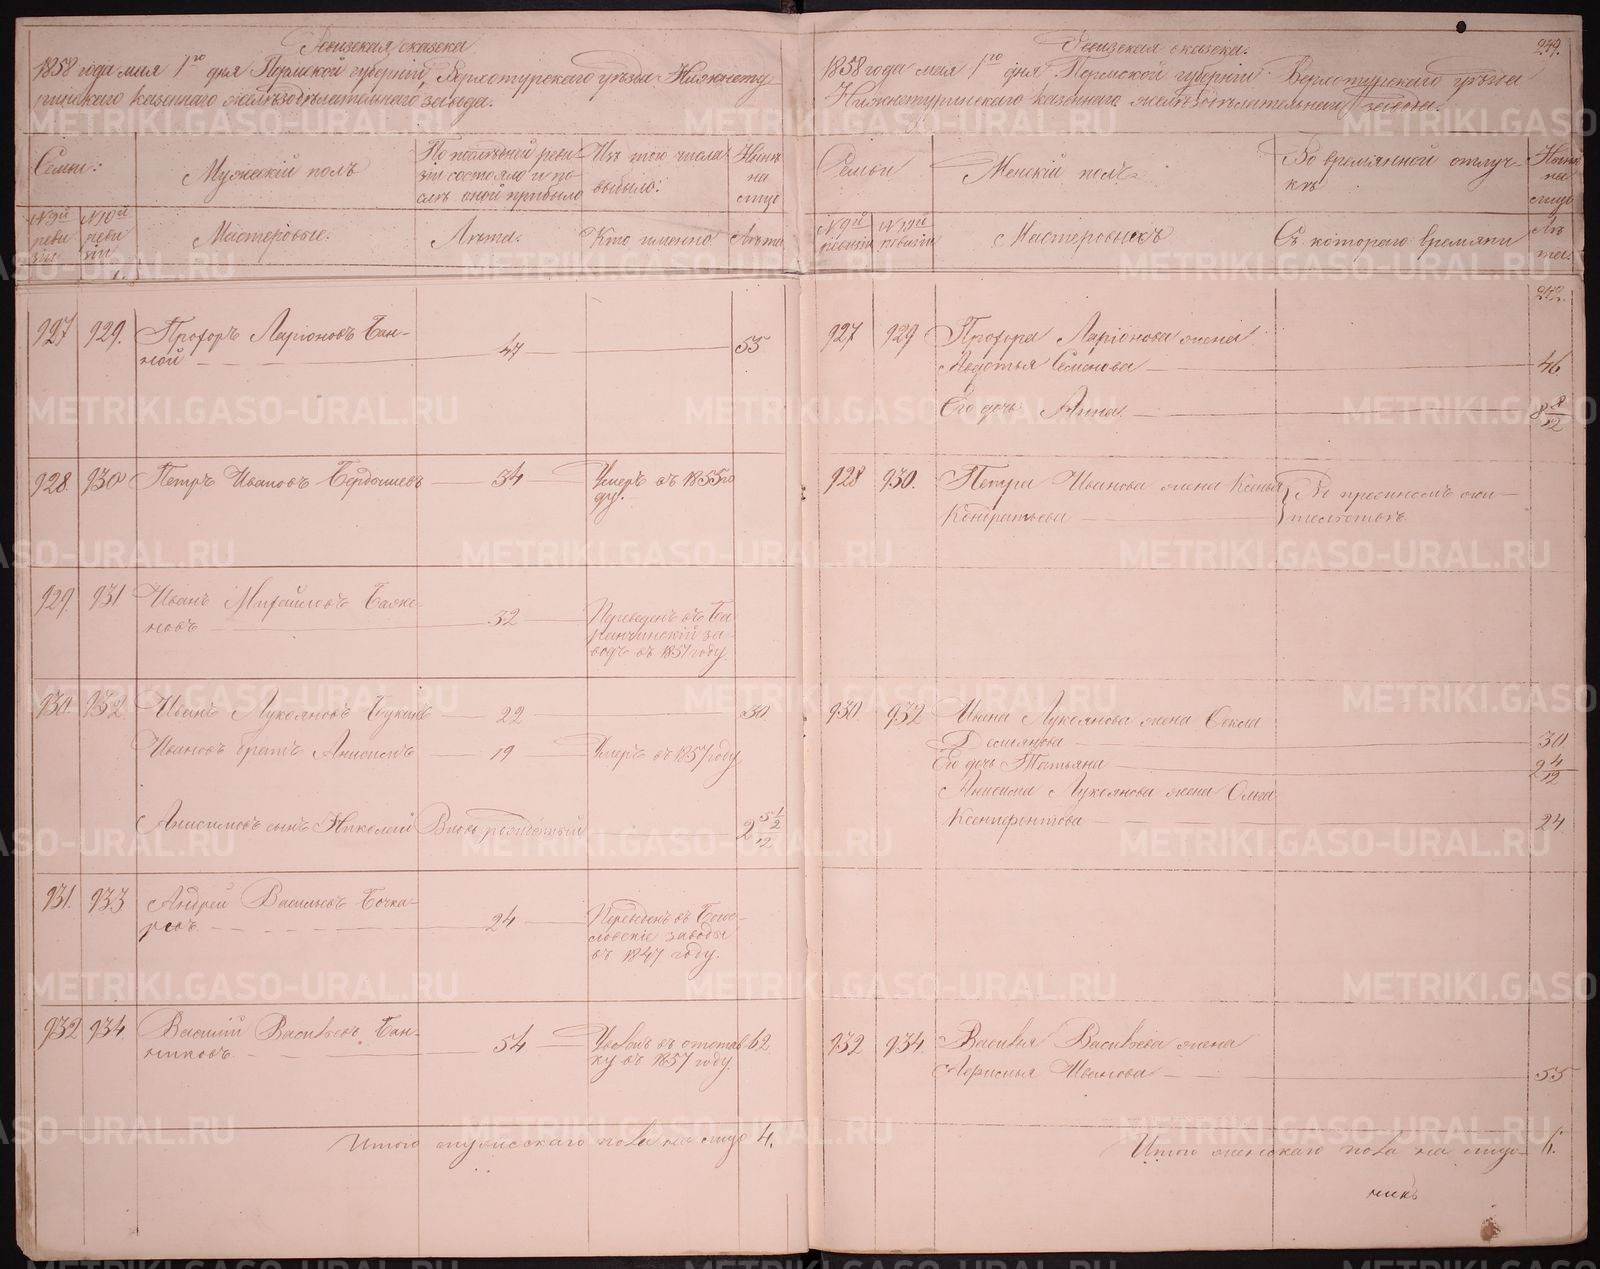 Ревизская сказка
1858 года мая 1го дня Пермской губернии, Верхотурского уѣзда Нижнету
ринского казенного желѣзодѣлательнаго завода.
Семьи:
Мужескій полъ
По послѣдней реви
зіи состояло и по
слѣ оной прибыло
Изъ того числа
выбыло:
Нынѣ
на
лицо
№ 9й
реви
зіи
№ 10й
реви
зіи
Мастеровые.
Лѣта.
Кто именно
Лѣта
927 929. Прохоръ Ларіоновъ Бан-
ной 47 55
928. 930 Петръ Ивановъ Бердышевъ 34 Умеръ въ 1855 го
ду.
929. 931 Иванъ Михайловъ Баже-
новъ 32 Переведенъ въ Ба
ранчинскій за-
водъ въ 1851 году.
930 932 Иванъ Лукояновъ Букинъ 22 30
Ивановъ братъ Анисимъ 19 Умеръ въ 1857 году
Анисимовъ сынъ Николай Вновь рожденный 2 5 1/2 /12
931. 933 Андрей Васильевъ Бочка-
ревъ 24 Переведенъ въ Бого-
словскіе заводы
въ 1847 году.
932 934. Василій Васильевъ Бан-
никовъ 54 Уволенъ въ отстав
ку въ 1857 году 62
Итого мужескаго пола на лицо 4.
Ревизская сказка.
1858 года мая 1го дня Пермской губерніи Верхотурскаго уѣзда
Нижнетуринскаго казеннаго желѣзодѣлательнаго завода.
Семьи
Женскій полъ
Во времянной отлуч-
кѣ
Нынѣ
на
лицо
№ 9й
ревизіи
№ 10й
ревизіи
Мастеровыхъ
Съ котораго времяни
Лѣ
та.
927 929 Прохора Ларіонова жена
Авдотья Семенова 46
Его дочь Анна 8 8/12
928 930. Петра Иванова жена Ксенья
Кондратьева
929 930 932 Ивана Лукоянова жена Фекла
Демьянова 30
Его дочь Татьяна 2 4/12
Анисима Лукоянова жена Ольга
Ксенифонтова 24
932 934. Василья Васильева жена
Лерисья Иванова 55
Итого женскаго пола на лицо 6.
METRIKI.GASO-URAL.RU